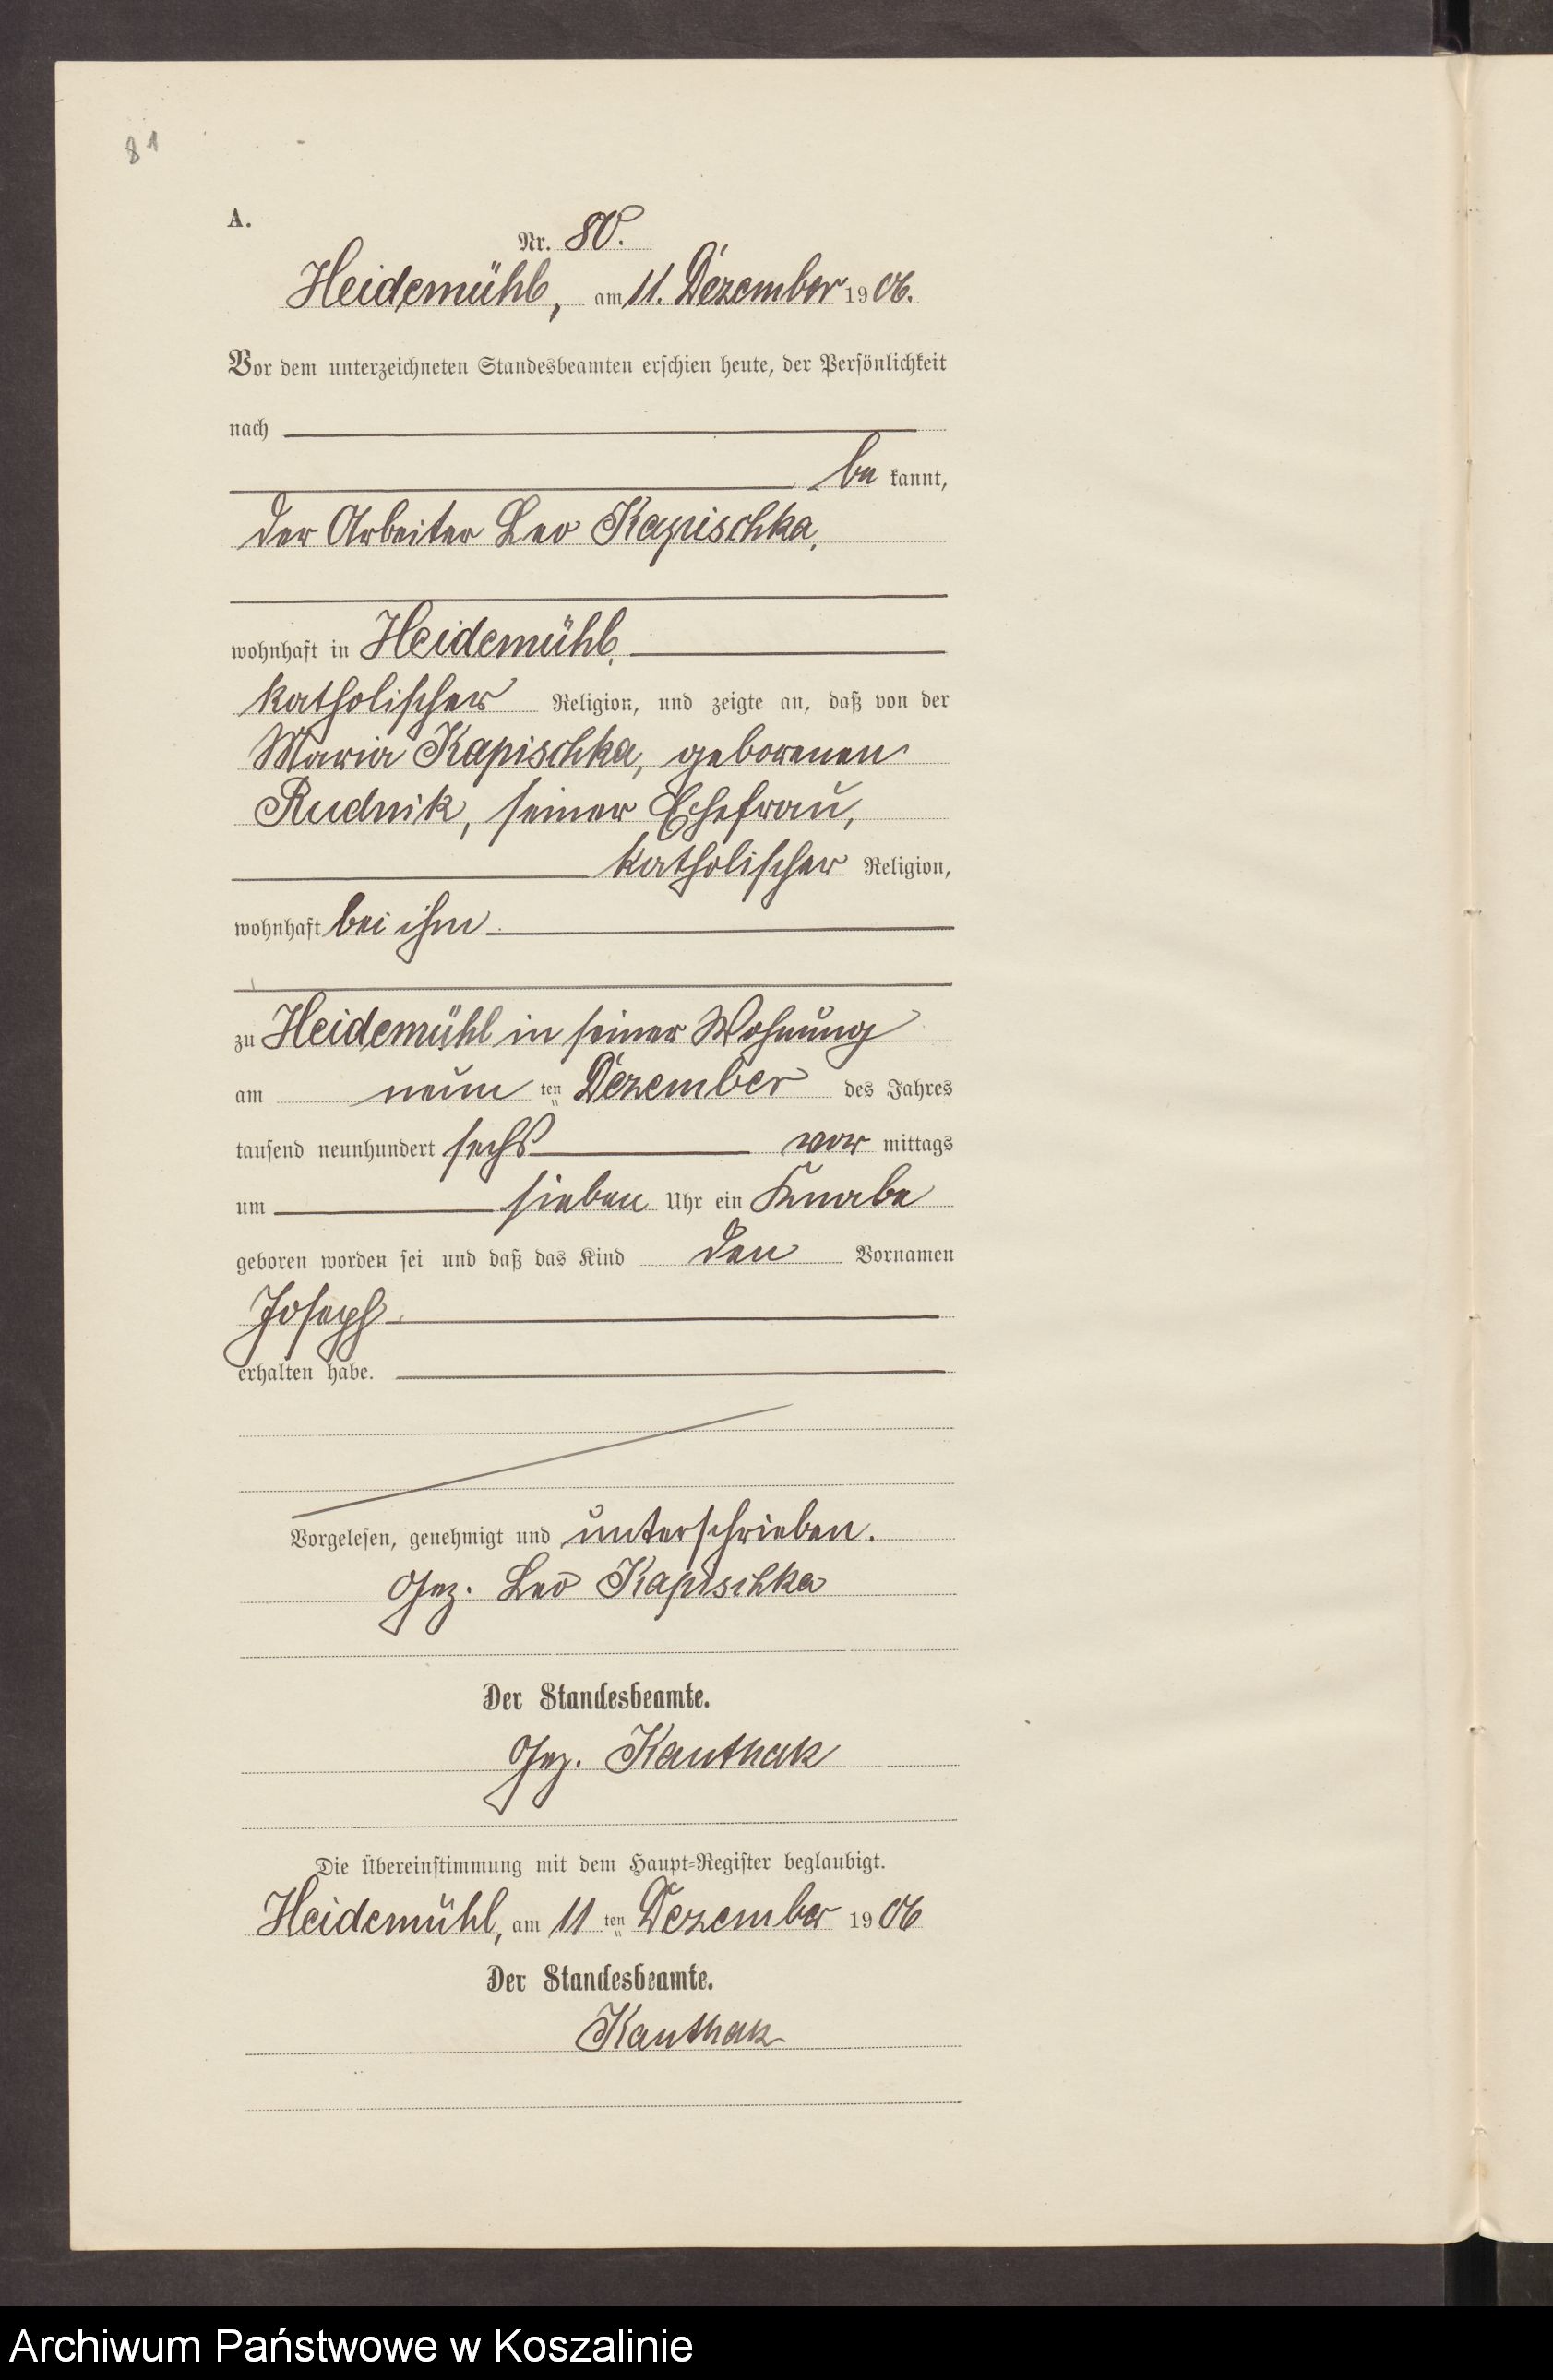 81
A.
Nr. 80.
Heidemühl, am 11. Dezember 1906.
Vor dem unterzeichneten Standesbeamten erschien heute, der Persönlichkeit
nach
be kannt,
der Arbeiter Leo Kapischka,
wohnhaft in Heidemühl,
katholischer Religion, und zeigte an, daß von der
Maria Kapischka, geborenen
Rudnik, seiner Ehefrau,
katholischer Religion,
wohnhaft bei ihm
zu Heidemühl in seiner Wohnung
am neun ten Dezember des Jahres
tausend neunhundert sechs vor mittags
um sieben Uhr ein Knabe
geboren worden sei und daß das Kind den Vornamen
Joseph
erhalten habe.
Vorgelesen, genehmigt und unterschrieben.
Gez. Leo Kapischka
Der Standesbeamte.
Gez. Kanthak
Die Übereinstimmung mit dem Haupt-Register beglaubigt.
Heidemühl, am 11 ten Dezember 1906
Der Standesbeamte.
Kanthak
Archiwum Państwowe w Koszalinie